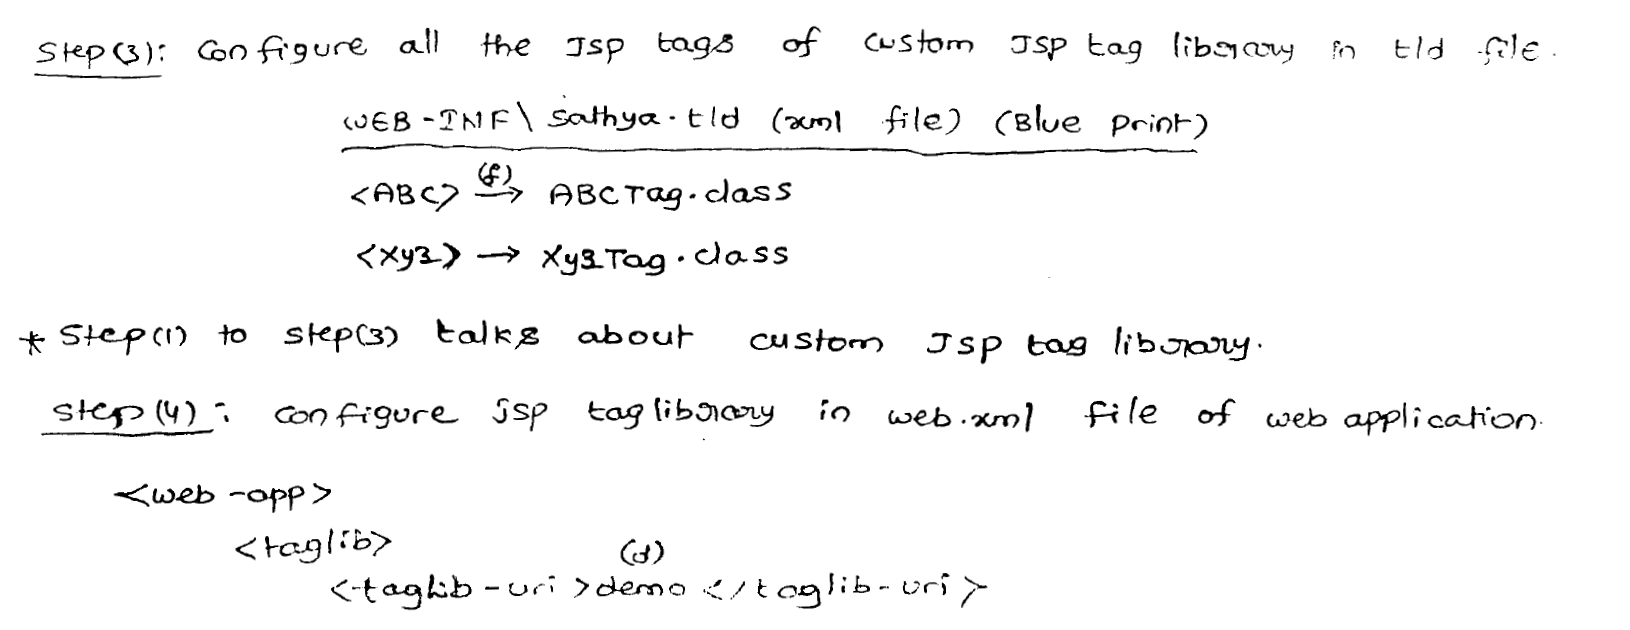 Step(3): Configure all the Jsp tags of custom Jsp tag library in tld file.
WEB-INF\ Sathya.tld (xml file) (Blue print)
(f)
<ABC> → ABCTag.class
<xyz> → XyzTag.class
* Step(1) to step(3) talks about custom Jsp tag library.
Step(4): configure jsp tag library in web.xml file of web application.
<web-app>
<taglib>
(d)
<taglib-uri>demo</taglib-uri>